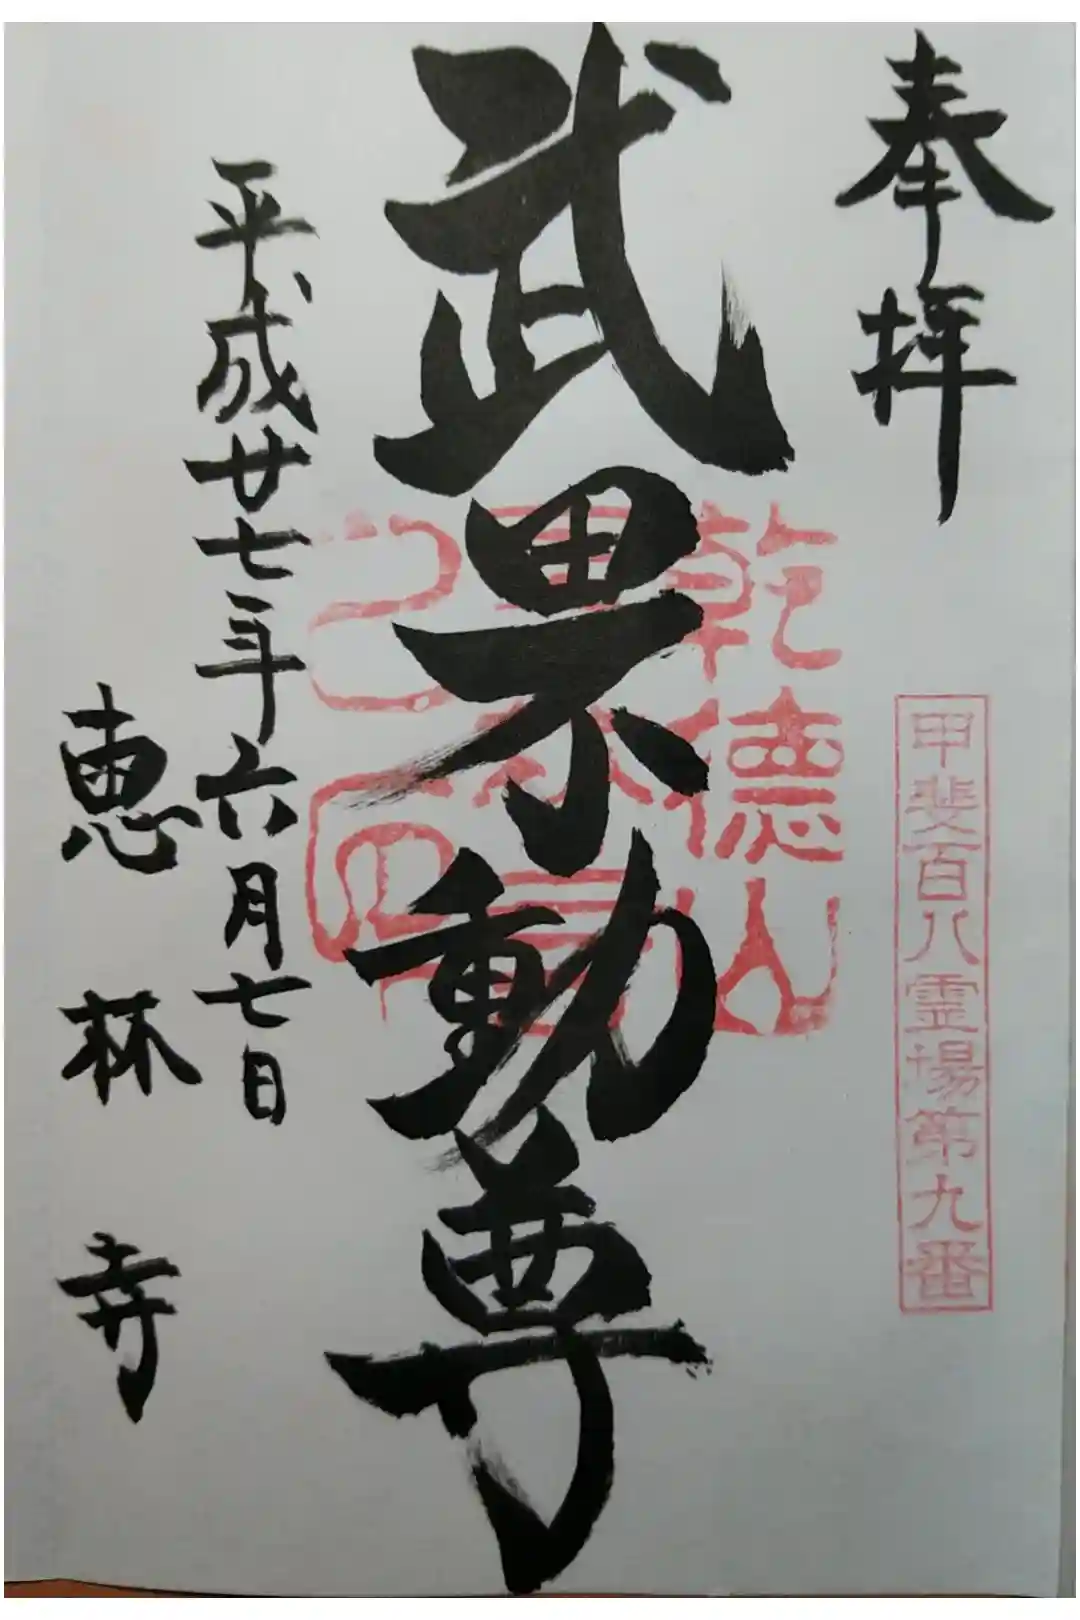 奉拝
甲斐百八霊場第九番
武田不動尊
乾徳山
平成廿七年六月七日
恵林寺